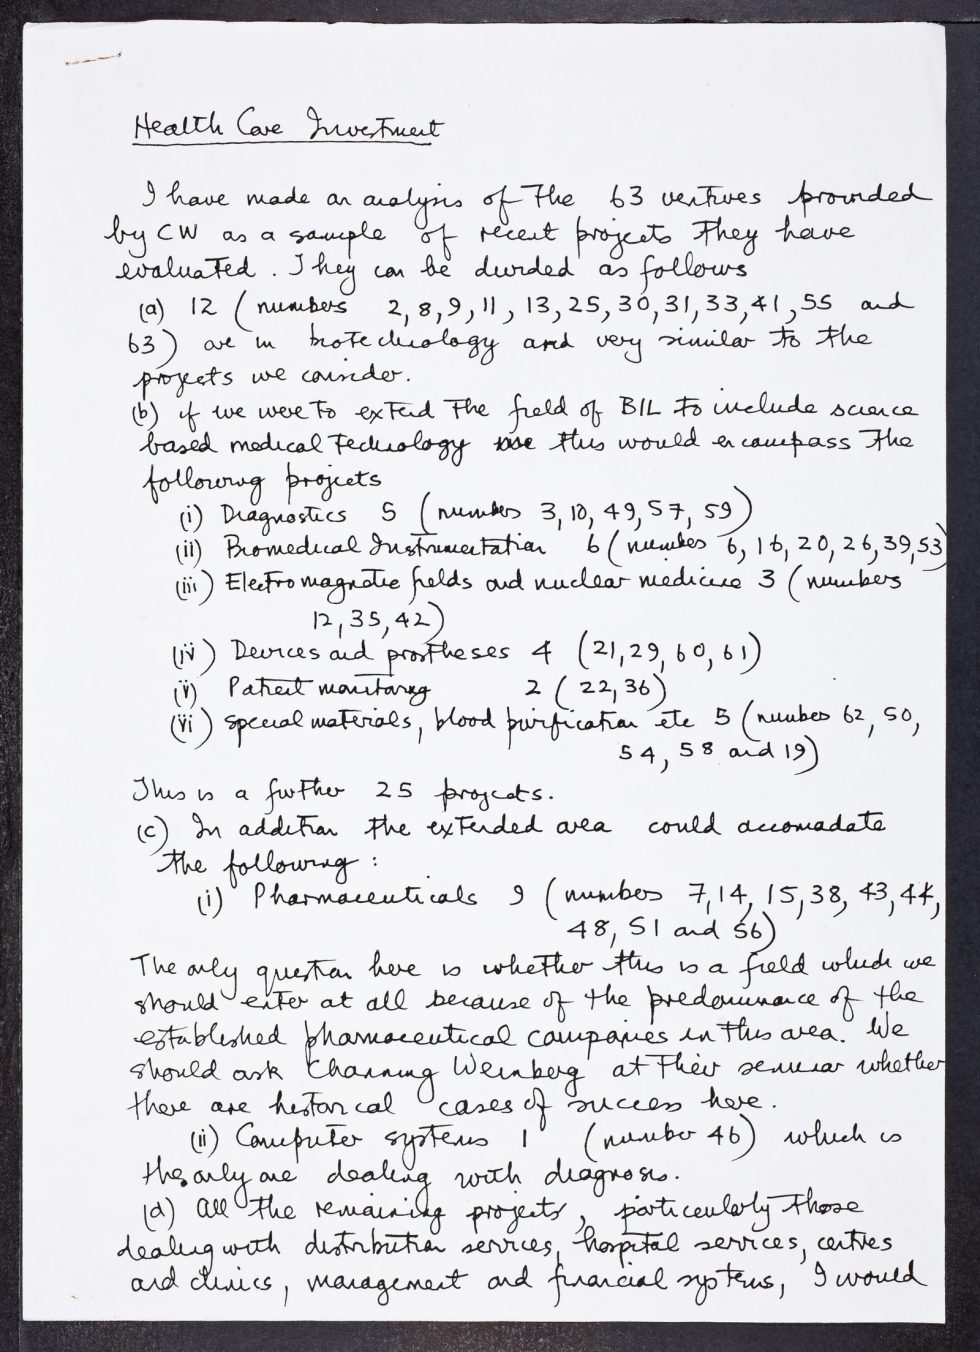 Health Care Investment
I have made an analysis of the 63 ventures provided
by CW as a sample of recent projects they have
evaluated. They can be divided as follows
(a) 12 (numbers 2, 8, 9, 11, 13, 25, 30, 31, 33, 41, 55 and
63) are in biotechnology and very similar to the
projects we consider.
(b) if we were to extend the field of BIL to include science
based medical technology this would encompass the
following projects
(i) Diagnostics 5 (numbers 3, 10, 49, 57, 59)
(ii) Biomedical Instrumentation 6 (numbers 6, 16, 20, 26, 39, 53
(iii) Electromagnetic fields and nuclear medicine 3 (numbers
12, 35, 42)
(iv) Devices and prostheses 4 (21, 29, 60, 61)
(v) Patient monitoring 2 (22, 36)
(vi) special materials, blood purification etc 5 (number 62, 50,
54, 58 and 19)
This is a further 25 projects.
(c) In addition the extended area could accomadate
the following:
(i) Pharmaceuticals 9 (numbers 7, 14, 15, 38, 43, 44,
48, 51 and 56)
The only question here is whether this is a field which we
should enter at all because of the predominance of the
established pharmaceutical companies in this area. We
should ask Channing Weinberg at their seminar whether
there are historical cases of success here.
(ii) Computer systems 1 (number 46) which is
the only one dealing with diagnosis.
(d) All the remaining projects, particularly those
dealing with distribution services, hospital services, centres
and clinics, management and financial systems, I would